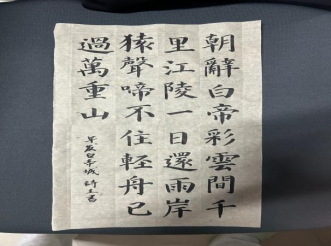 朝辭白帝彩雲間千
里江陵一日還兩岸
猿聲啼不住輕舟已
過萬重山
早发白帝城